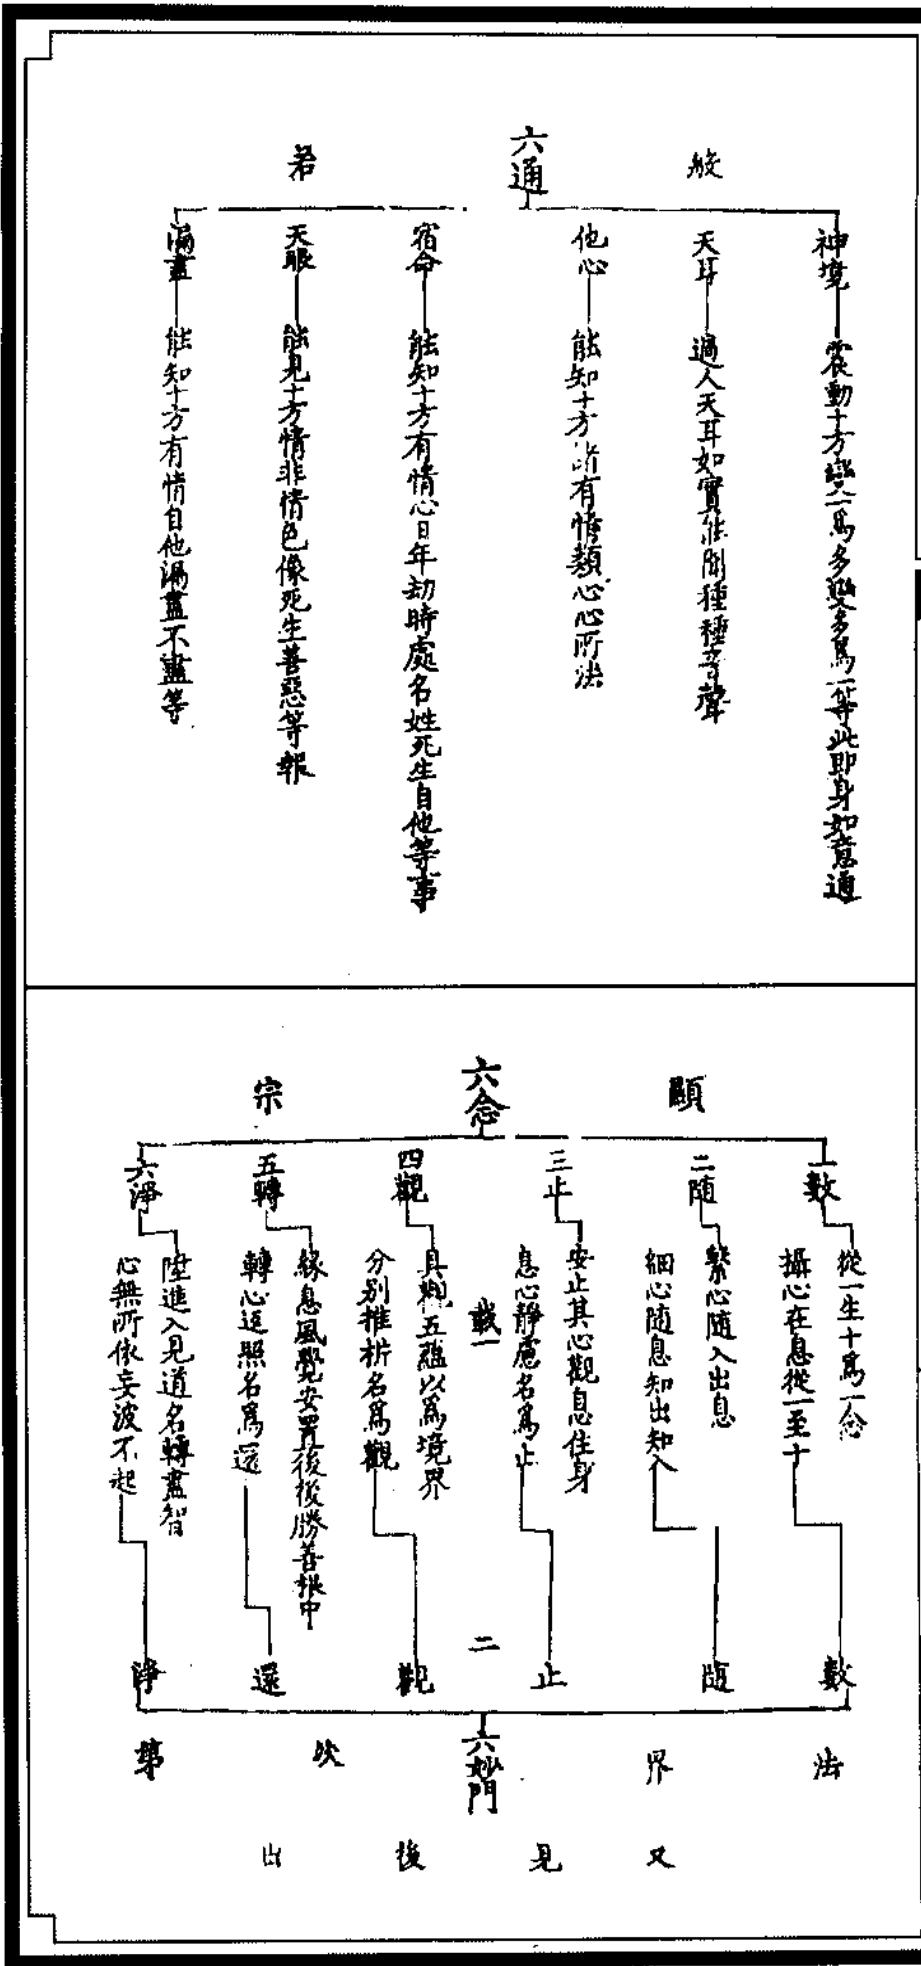 般 六通 若
神境 震動十方變一爲多變多爲一等此即身如意通
天耳 過人天耳如實能聞種種音聲
他心 能知十方諸有情類心心所法
宿命 能知十方有情心日年劫時處名姓死生自他等事
天眼 能見十方情非情色像死生善惡等報
漏盡 能知十方有情自他漏盡不盡等
顯 六念 宗
一數
從一生十爲一念
攝心在息從一至十
數
二隨
繫心隨入出息
細心隨息知出知入
隨
三止
安止其心觀息住身
息心靜慮名爲止
止
載一
二
四觀
具觀五蘊以爲境界
分別推析名爲觀
觀
五轉
緣息風覺安置後後勝善根中
轉心返照名爲還
還
六淨
陞進入見道名轉盡智
心無所依妄波不起
淨
六妙門
法界次第
又見後出